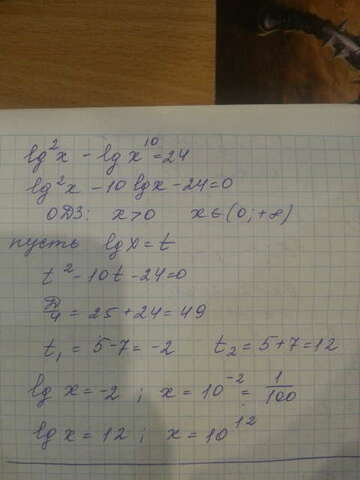 lg²x - lg x¹⁰ = 24
lg²x - 10 lgx - 24 = 0
ОДЗ: x>0 x∈(0; +∞)
пусть lgx = t
t² - 10t - 24 = 0
D/4 = 25 + 24 = 49
t₁ = 5 - 7 = -2 t₂ = 5 + 7 = 12
lg x = -2 ; x = 10⁻² = 1/100
lg x = 12 ; x = 10¹²